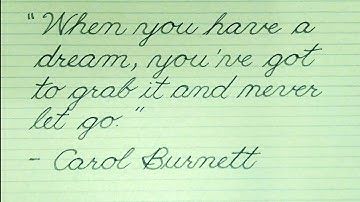 "When you have a
dream, you've got
to grab it and never
let go."
- Carol Burnett